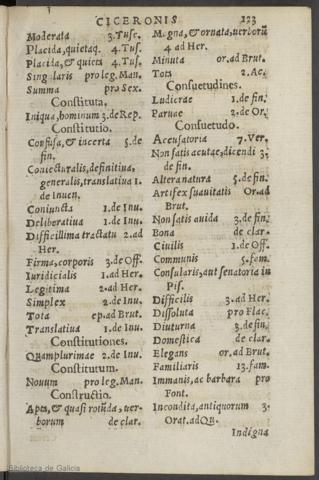 CICERONIS 123
Moderata 3. Tusc.
Placida, quietaq. 4. Tus.
Placida, & quieta 4. Tus.
Singularis pro leg. Man.
Summa pro Sex.
Constituta.
Iniqua, hominum 3. de Rep.
Constitutio.
Confusa, & incerta 5. de
fin.
Coniecturalis, definitiua,
generalis, translatiua 1.
de Inuen.
Coniuncta 1. de Inu.
Deliberatiua 1. de Inu.
Difficillima tractatu 2. ad
Her.
Firma, corporis 3. de Off.
Iuridicialis 1. ad Her.
Legitima 2. ad Her.
Simplex 2. de Inu.
Tota ep. ad Brut.
Translatiua 1. de Inu.
Constitutiones.
Quamplurimae 2. de Inu.
Constitutum.
Nouum pro leg. Man.
Constructio.
Apta, & quasi rotũda, uer-
borum de clar.
Magna, & ornata, uerborũ
4 ad Her.
Minuta or. ad Brut.
Tota 2. Ac.
Consuetudines.
Ludicrae 1. de fin.
Paruae 2. de Or.
Consuetudo.
Accusatoria 7. Ver.
Non satis acutae, dicendi 3.
de fin.
Altera natura 5. de fin.
Artifex suauitatis Or. ad
Brut.
Non satis auida 3. de fin.
Bona de clar.
Ciuilis 1. de Off.
Communis 5. fam.
Consularis, aut senatoria in
Pis.
Difficilis 3. ad Her.
Dissoluta pro Flac.
Diuturna 3. de fin.
Domestica de clar.
Elegans or. ad Brut.
Familiaris 13. fam.
Immanis, ac barbara pro
Font.
Incondita, antiquorum 3.
Orat. ad Qu.
Indigna
Biblioteca de Galicia